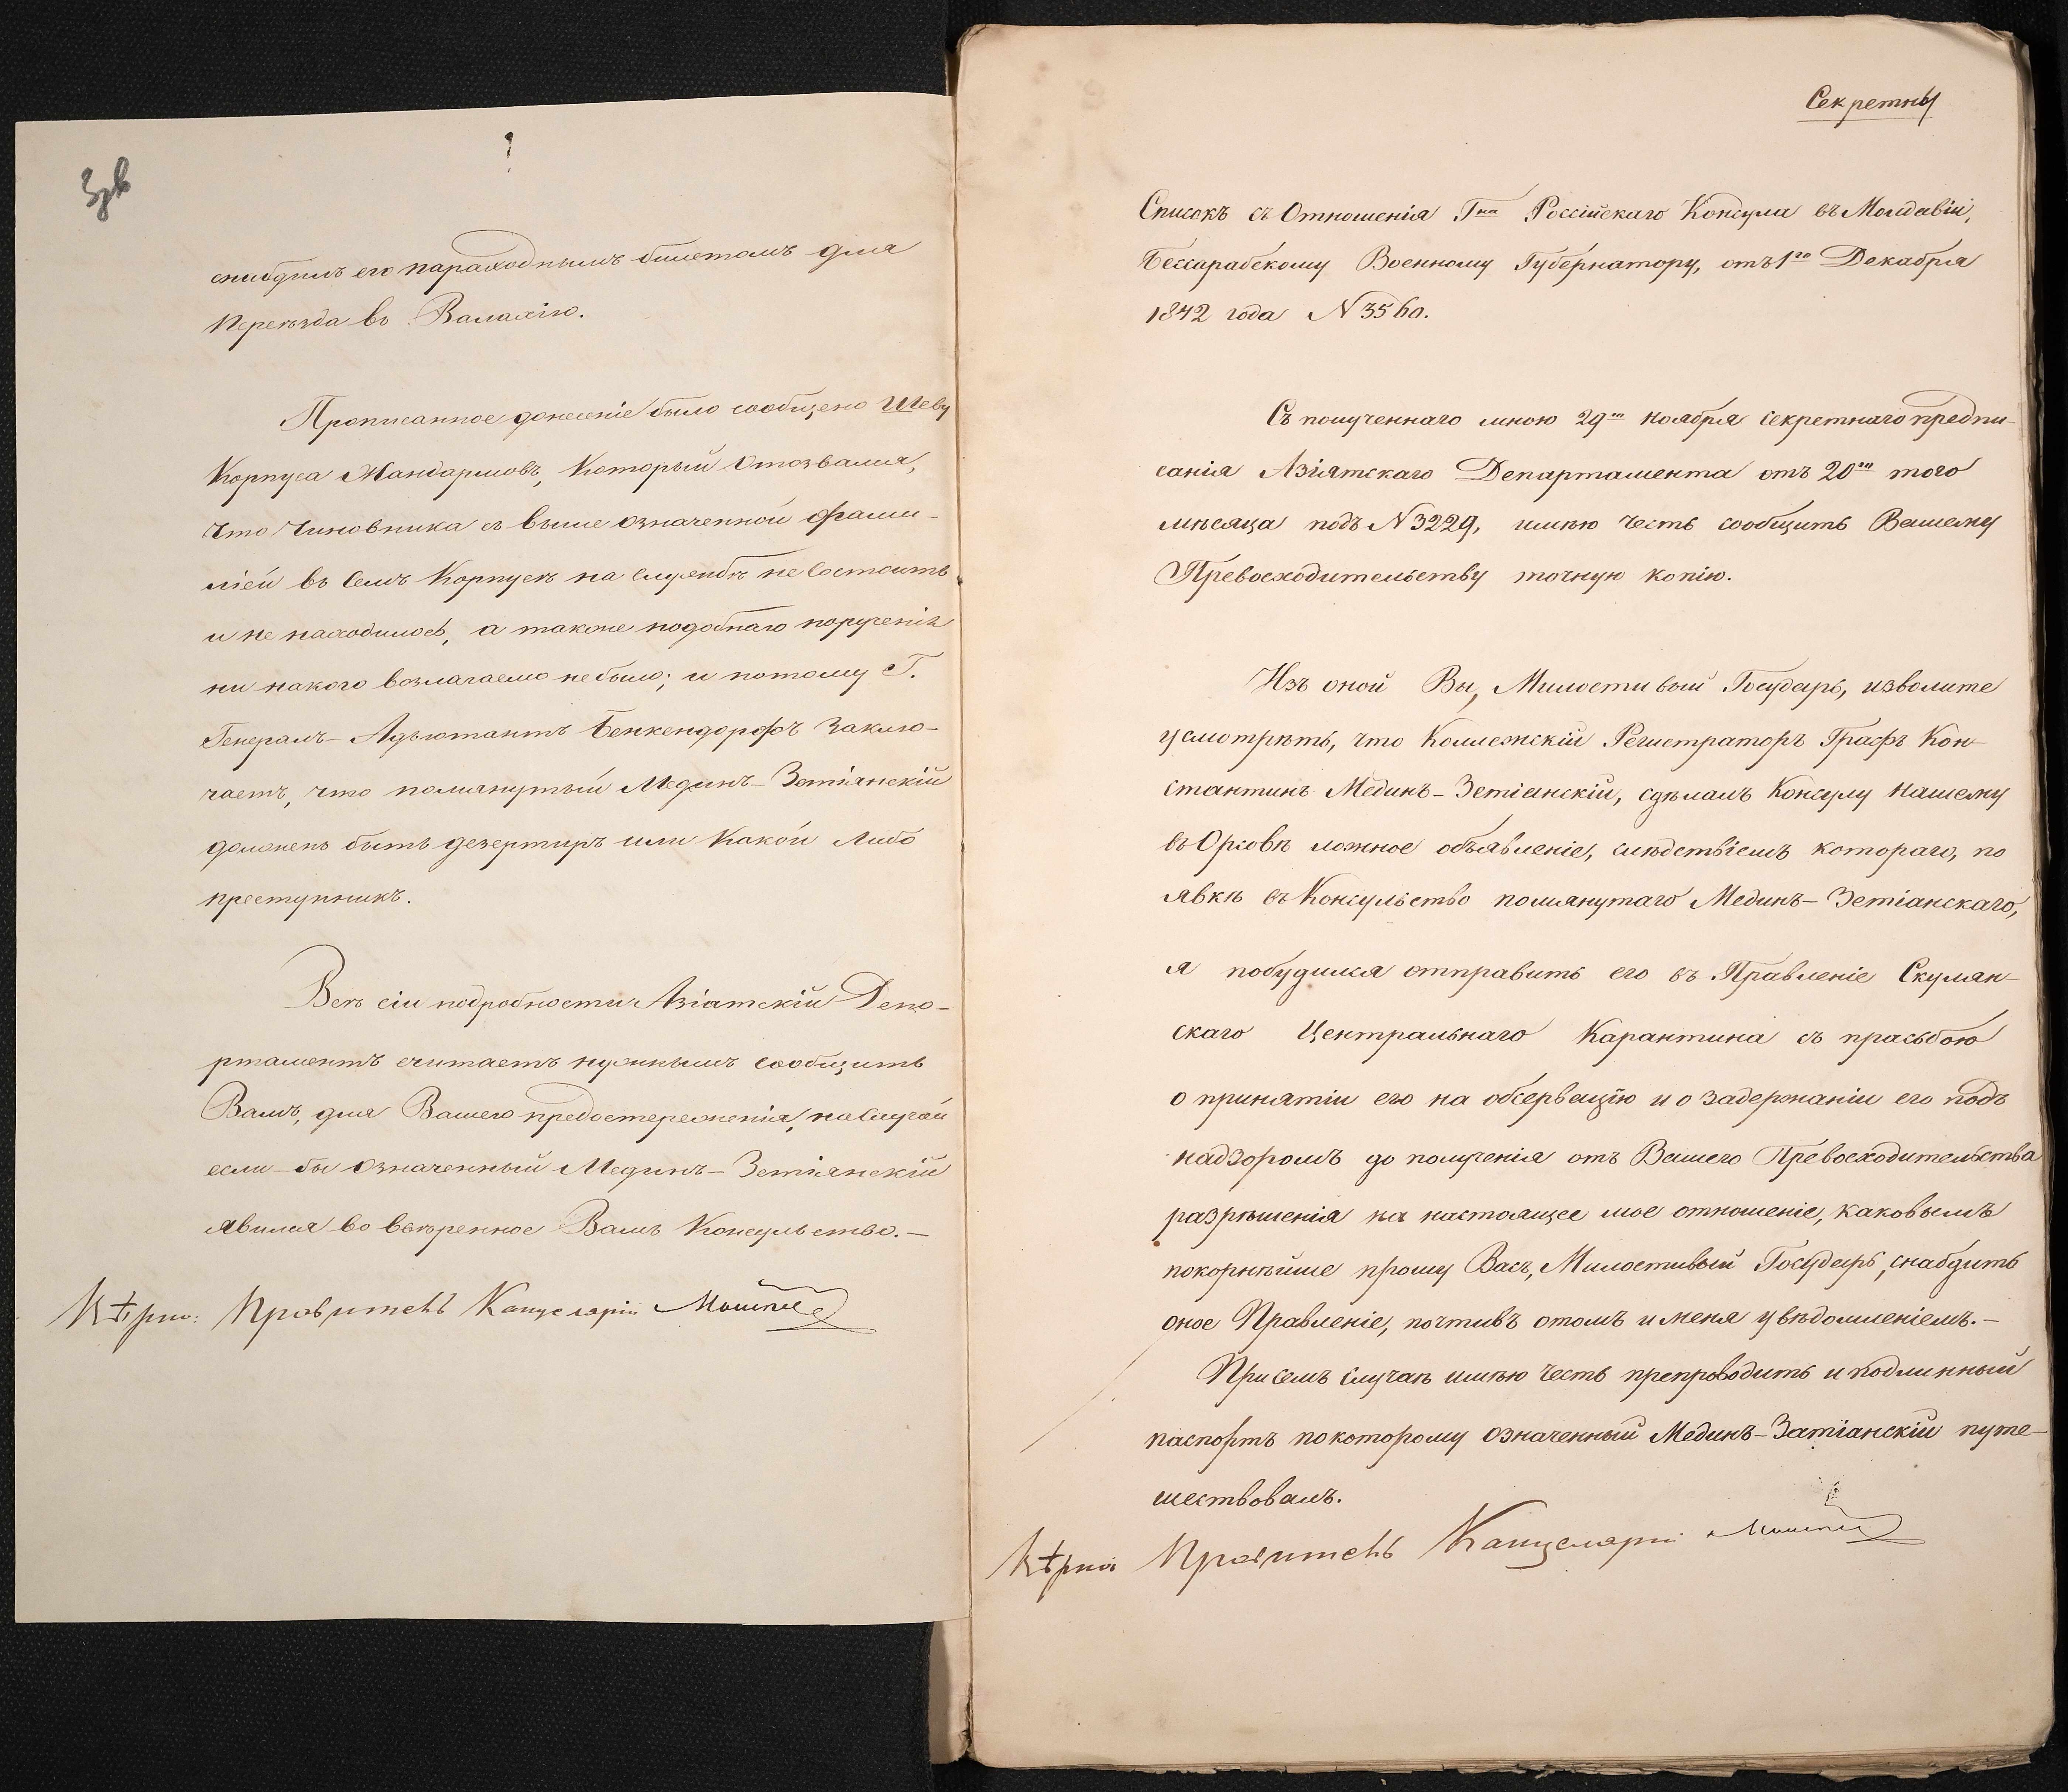 снабдилъ его параходнымъ билетомъ для
переѣзда въ Валахію.
Прописанное донесеніе было сообщено Шефу
Корпуса Жандармовъ, который отозвался,
что чиновника съ выше означенной фами-
ліей въ семъ Корпусѣ на службѣ не состоитъ
и не находилось, а также подобнаго порученія
ни какого возлагаемо не было; и потому Г.
Генералъ-Адъютантъ Бенкендорфъ заклю-
чаетъ, что помянутый Мединъ-Зетіянскій
долженъ быть дезертиръ или какой либо
преступникъ.
Всѣ сіи подробности Азіатскій Депа-
ртаментъ считаетъ нужнымъ сообщить
Вамъ, для Вашего предостереженія, на случай
если-бы означенный Мединъ-Зетіянскій
явился во ввѣренное Вамъ Консульство.-
Вѣрно: Правитель Канцеляріи
Секретно
Списокъ съ Отношенія Гна Россійскаго Консула въ Молдавіи,
Бессарабскому Военному Губернатору, отъ 1го Декабря
1842 года N 3560.
Съ полученнаго мною 29го Ноября секретнаго предпи-
санія Азіятскаго Департамента отъ 20го того
мѣсяца подъ N 3229, имѣю честь сообщить Вашему
Превосходительству точную копію.
Изъ оной Вы, Милостивый Государь, изволите
усмотрѣть, что Коллежскій Регистраторъ Графъ Кон-
стантинъ Мединъ-Зетіанскій, сдѣлалъ Консулу Нашему
въ Орсовѣ ложное объявленіе, слѣдствіемъ котораго, по
явкѣ въ Консульство помянутаго Мединъ-Зетіанскаго,
я побудился отправить его въ Правленіе Скулян-
скаго Центральнаго Карантина съ прасьбою
о принятіи его на обсервацію и о задержаніи его подъ
надзоромъ до полученія отъ Вашего Превосходительства
разрѣшенія на настоящее мое отношеніе, каковымъ
покорнѣйше прошу Васъ, Милостивый Государь, снабдить
оное Правленіе, почтивъ отомъ и меня увѣдомленіемъ.-
При семъ случаѣ имѣю честь препроводить и подлинный
паспортъ по которому означенный Мединъ-Затіанскій путе-
шествовалъ.
Вѣрно: Правитель Канцеляріи